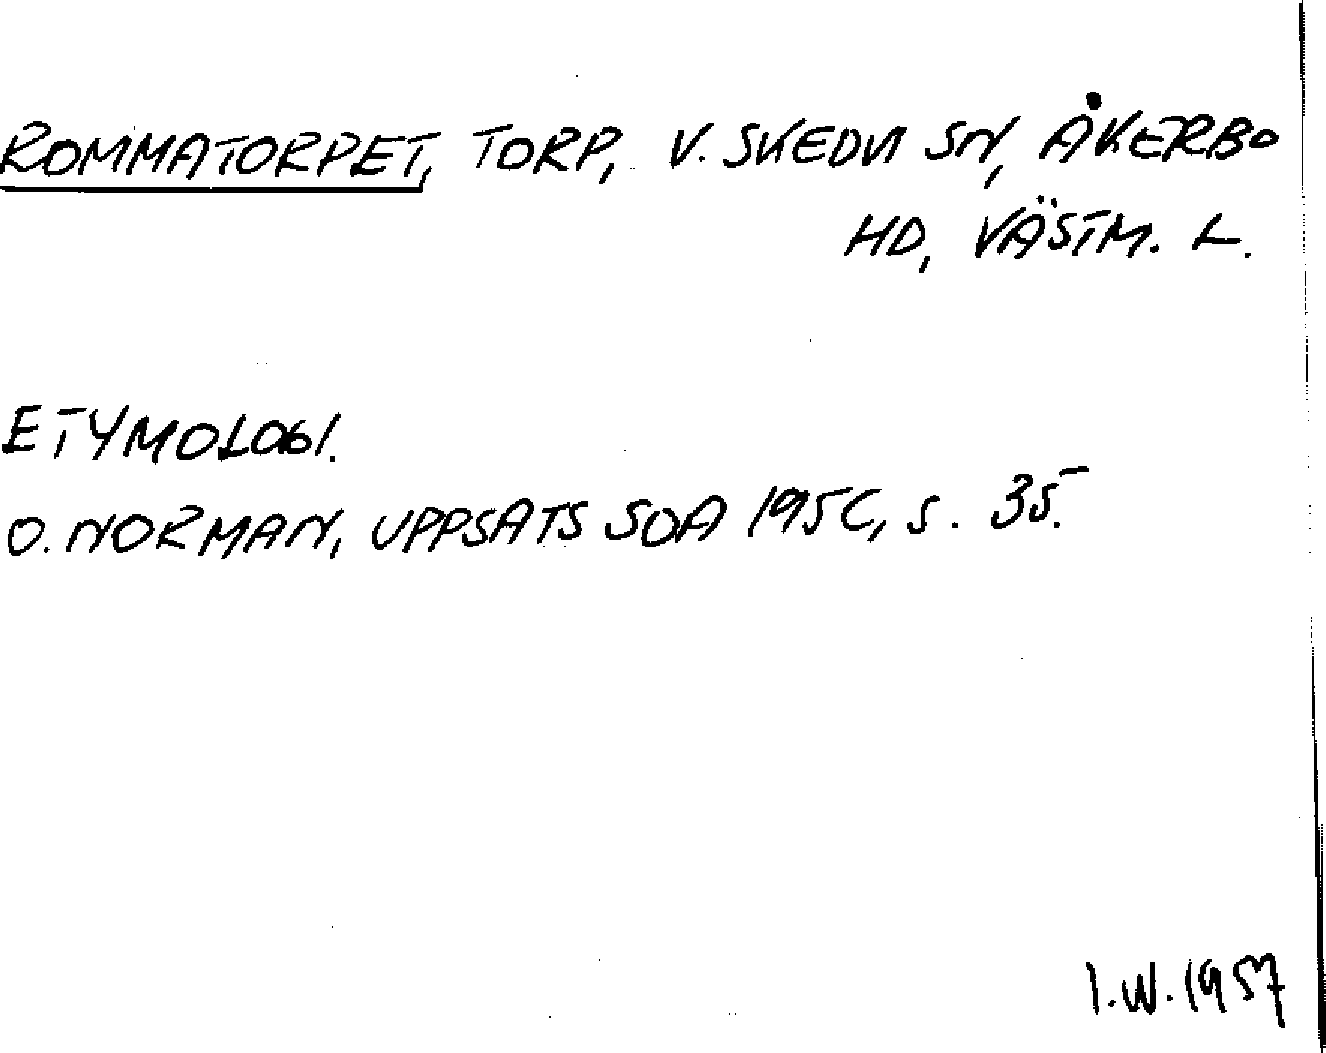 ROMMATORPET, TORP, V. SKEDVI SN, ÅKERBO
HD, VÄSTM. L.
ETYMOLOGI.
O. NORMAN, UPPSATS SOA 195C, s. 35.
I.W. 1957